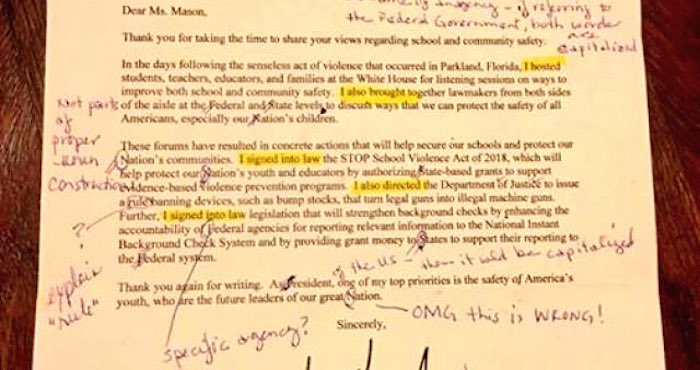 Dear Ms. Mason,
agency - if referring to
the Federal Government, both words
are
capitalized
Thank you for taking the time to share your views regarding school and community safety.
In the days following the senseless act of violence that occurred in Parkland, Florida, I hosted
students, teachers, educators, and families at the White House for listening sessions on ways to
improve both school and community safety. I also brought together lawmakers from both sides
of the aisle at the Federal and State levels to discuss ways that we can protect the safety of all
Americans, especially our Nation's children.
Not part
of
proper
noun
construction
These forums have resulted in concrete actions that will help secure our schools and protect our
Nation's communities. I signed into law the STOP School Violence Act of 2018, which will
help protect our Nation's youth and educators by authorizing State-based grants to support
evidence-based violence prevention programs. I also directed the Department of Justice to issue
a rule banning devices, such as bump stocks, that turn legal guns into illegal machine guns.
Further, I signed into law legislation that will strengthen background checks by enhancing the
accountability of Federal agencies for reporting relevant information to the National Instant
Background Check System and by providing grant money to States to support their reporting to
the Federal system.
?
explain
"rule"
of the US - then it would be capitalized
Thank you again for writing. As President, one of my top priorities is the safety of America's
youth, who are the future leaders of our great Nation.
OMG this is WRONG!
Sincerely,
specific agency?